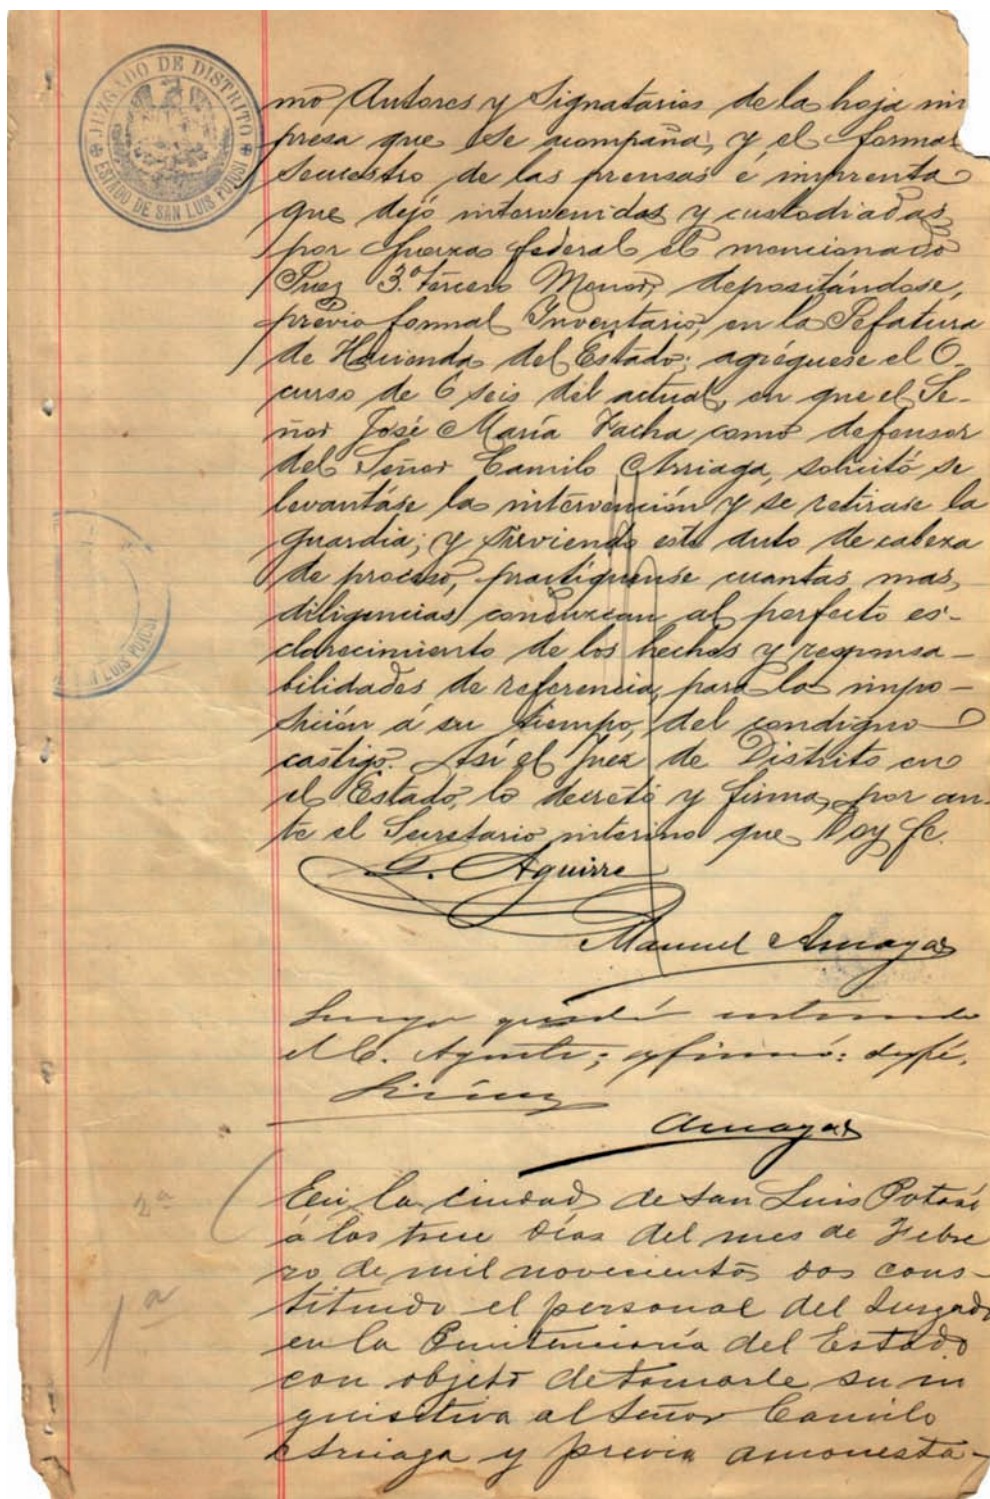 JUZGADO DE DISTRITO
ESTADO DE SAN LUIS POTOSI
mo Autores y Signatarios de la hoja im
presa que se acompaña, y el formal
secuestro de las prensas é imprenta
que dejó intervenidas y custodiadas
por fuerza federal el mencionado
Juez 3.º tercero Menor, depositándose,
prévio formal Inventario, en la Jefatura
de Hacienda del Estado; agréguese el O-
curso de 6 seis del actual, en que el Se-
ñor José María Facha como defensor
del Señor Camilo Arriaga, solicitó se
levantáse la intervención y se retirase la
guardia; y sirviendo este auto de cabeza
de proceso, practíquense cuantas mas
diligencias conduzcan al perfecto es-
clarecimiento de los hechos y responsa-
bilidades de referencia, para la impo-
sición á su tiempo, del condigno
castigo. Así el Juez de Distrito en
el Estado, lo decretó y firma, por an-
te el Secretario interino que doy fe.
Aguirre
Manuel Amaya
LUIS POTOSI
Luego quedó enterado
el C. Agente; y firmó: doy fé.
Amaya
2ª
En la ciudad de San Luis Potosí
á los trece días del mes de Febre
ro de mil novecientos dos cons-
tituido el personal del Juzgado
1ª
en la Penitenciaría del Estado
con objeto de tomarle su in
quisitiva al Señor Camilo
Arriaga y previa amonesta-